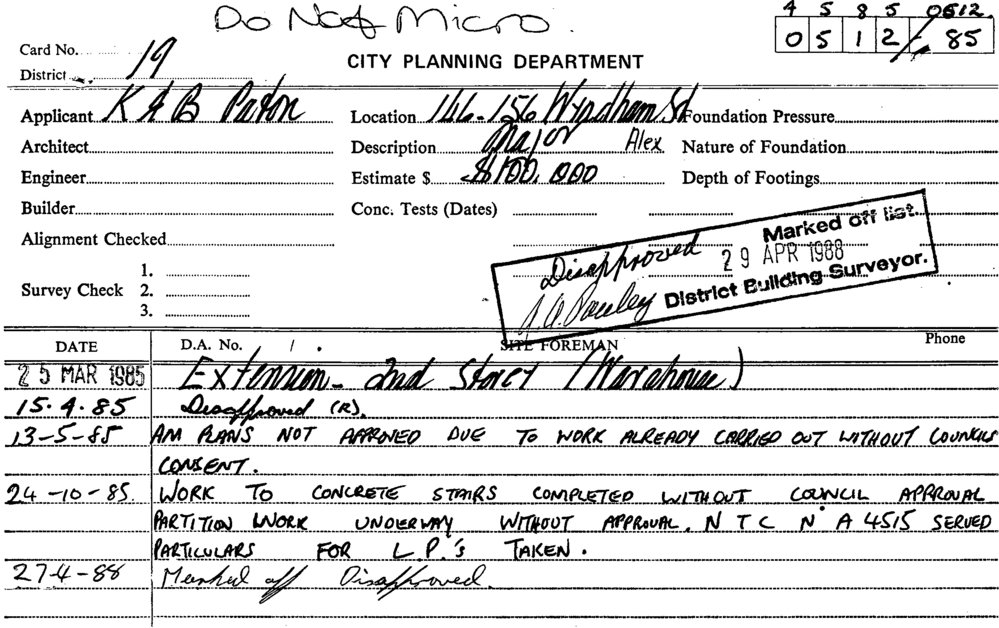 Do Not Micro.
4 5 8 5 0612.
0 5 1 2 - 85
Card No.
District 19
CITY PLANNING DEPARTMENT
Applicant K & B Paton Location 146-156 Wyndham St Foundation Pressure
Architect Description Major Alex Nature of Foundation
Engineer Estimate $ $100,000 Depth of Footings
Builder Conc. Tests (Dates)
Alignment Checked
Survey Check 1.
2.
3.
Disapproved Marked off list.
29 APR 1988
District Building Surveyor.
DATE D.A. No. / . SITE FOREMAN Phone
25 MAR 1985 Extension - 2nd Storey (Warehouse)
15.4.85 Disapproved (R).
13-5-85 AM PLANS NOT APPROVED DUE TO WORK ALREADY CARRIED OUT WITHOUT COUNCILS
CONSENT.
24-10-85. WORK TO CONCRETE STAIRS COMPLETED WITHOUT COUNCIL APPROVAL
PARTITION WORK UNDERWAY WITHOUT APPROVAL. N T C Nº A 4515 SERVED
PARTICULARS FOR L P.'s TAKEN.
27-4-88 Marked off Disapproved.